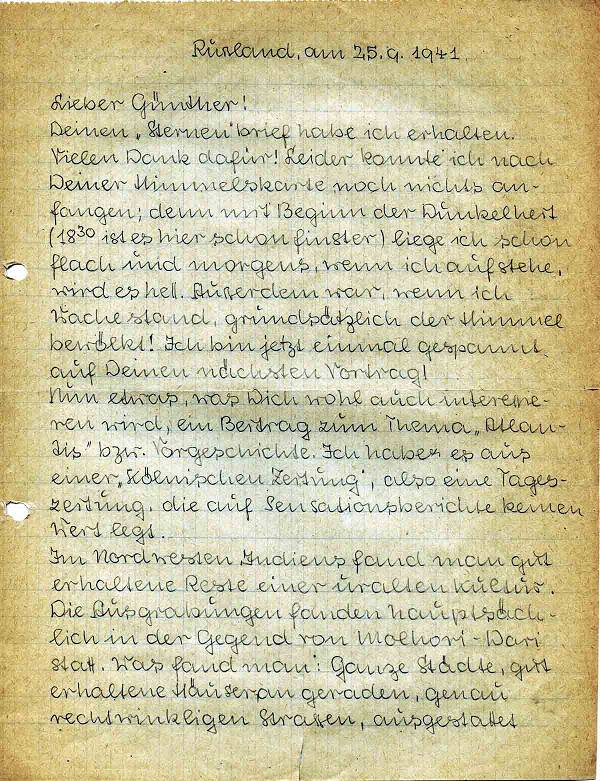 Rußland, am 25.9. 1941.
Lieber Günther!
Deinen „Sternen"brief habe ich erhalten.
Vielen Dank dafür! Leider konnte ich nach
Deiner Himmelskarte noch nichts an-
fangen; denn mit Beginn der Dunkelheit
(18³⁰ ist es hier schon finster) liege ich schon
flach und morgens, wenn ich aufstehe,
wird es hell. Außerdem war, wenn ich
Wache stand, grundsätzlich der Himmel
bewölkt! Ich bin jetzt einmal gespannt
auf Deinen nächsten Vortrag!
Nun etwas, was Dich wohl auch interessie-
ren wird, ein Beitrag zum Thema „Atlan-
tis" bzw. Vorgeschichte. Ich habe es aus
einer „Kölnischen Zeitung", also eine Tages-
zeitung, die auf Sensationsberichte keinen
Wert legt.
Im Nordwesten Indiens fand man gut
erhaltene Reste einer uralten Kultur.
Die Ausgrabungen fanden hauptsäch-
lich in der Gegend von Molhori-Dari
statt. Was fand man: Ganze Städte, gut
erhaltene Häuser an geraden, genau
rechtwinkligen Strassen, ausgestattet